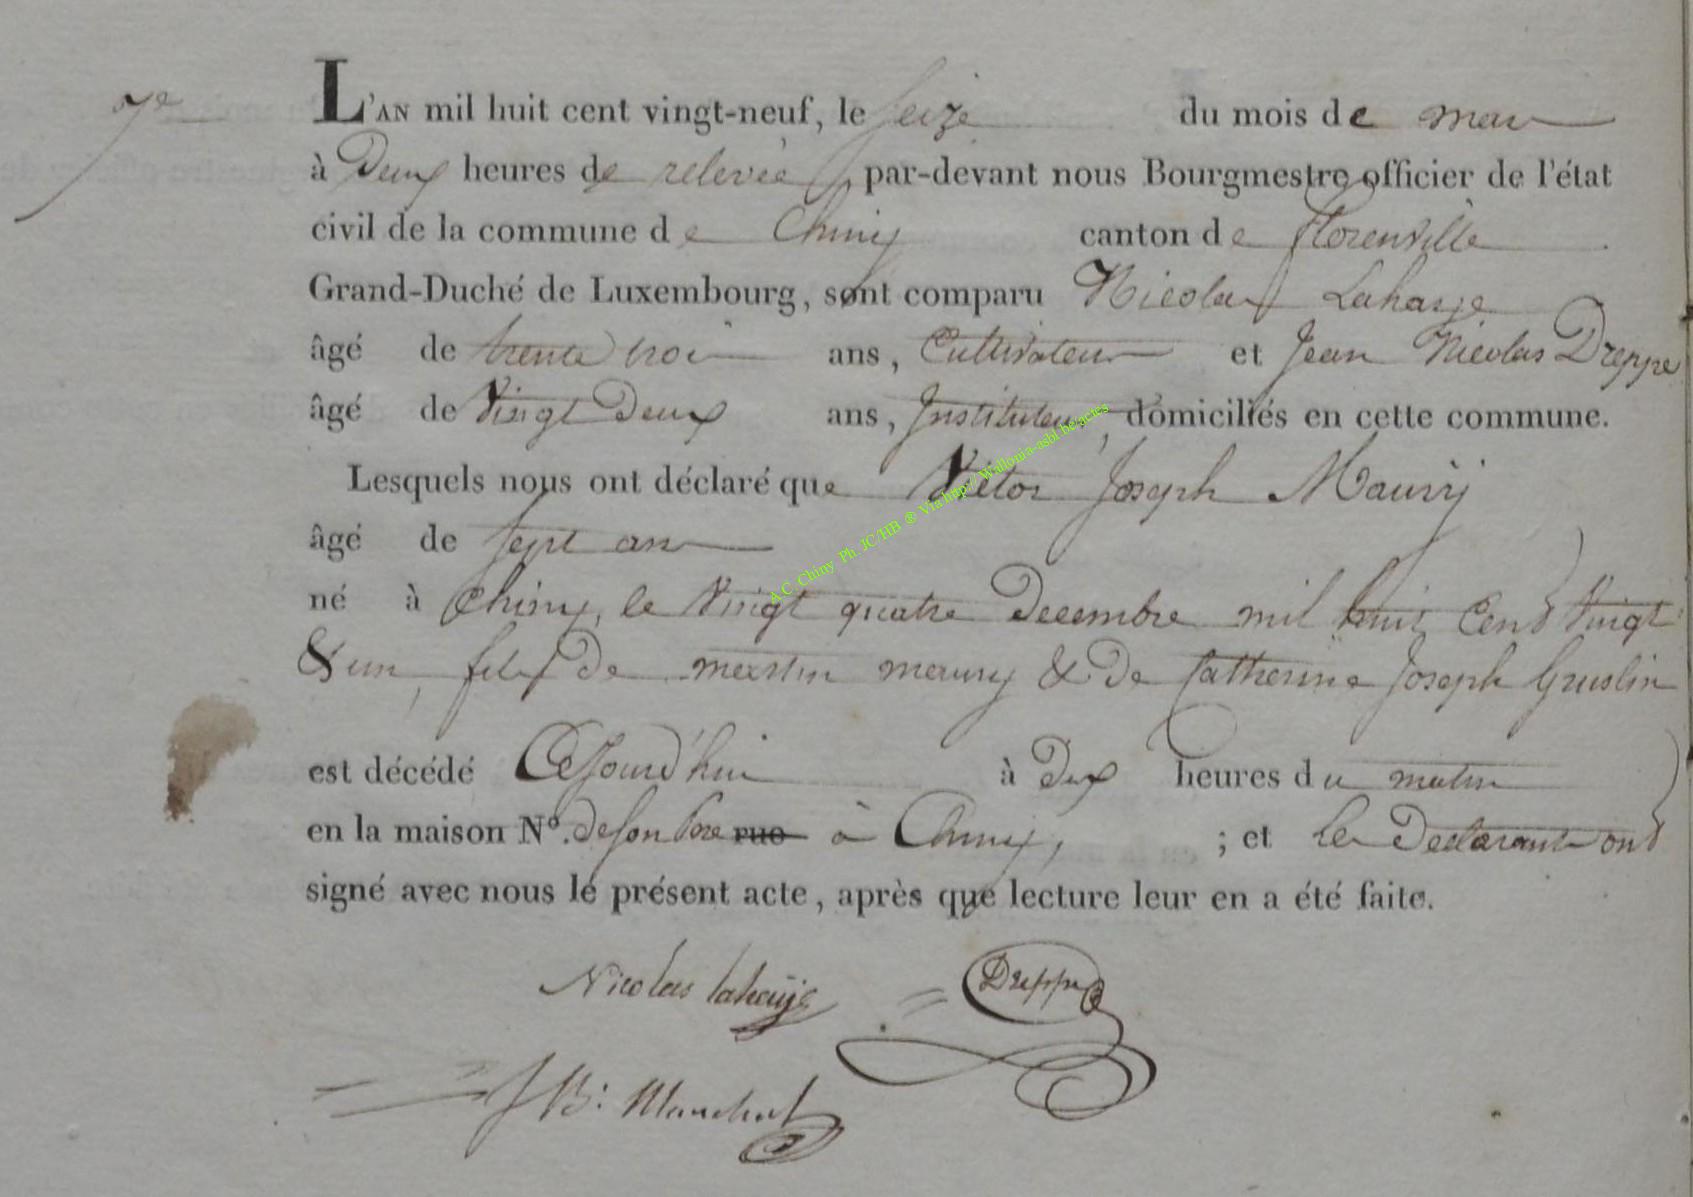 7e
L'AN mil huit cent vingt-neuf, le seize du mois de mars
à Deux heures de relevée, par-devant nous Bourgmestre officier de l'état
civil de la commune de Chiny canton de florenville
Grand-Duché de Luxembourg, sont comparu Nicolas Lahaye
âgé de trente trois ans, Cultivateur et Jean Nicolas Dreppe
âgé de Vingt Deux ans, Instituteur, domiciliés en cette commune.
Lesquels nous ont déclaré que Victor Joseph Maury
âgé de sept ans
né à Chiny, le Vingt quatre Decembre mil huit Cent Vingt
& un, fils de martin maury & De Catherine Joseph Gruslin
est décédé Cejourd'hui à Deux heures du matin
en la maison N°. de son Pere rue à Chiny, ; et les Declarants ont
signé avec nous le présent acte, après que lecture leur en a été faite.
Nicolas lahaÿe Dreppe
J B: Manchat
A.C. Chiny Ph. JC/HB ® Via http://Wallonia-asbl.be/actes